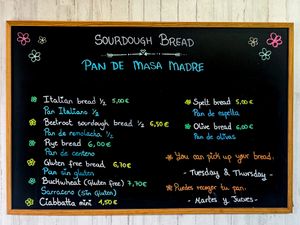 SOURDOUGH BREAD
PAN DE MASA MADRE
Italian bread 1/2 5,00€
Pan Italiano 1/2
Beetroot sourdough bread 1/2 6,50€
Pan de remolacha 1/2
Rye bread 6,00€
Pan de centeno
Gluten free bread 6,70€
Pan sin gluten
Buckwheat (Gluten free) 7,70€
Sarraceno (sin gluten)
Ciabatta mini 1,50€
Spelt bread 5,00€
Pan de espelta
Olive bread 6,00€
Pan de olivas
You can pick up your bread:
- Tuesday & Thursday -
Puedes recoger tu pan:
- Martes y Jueves -